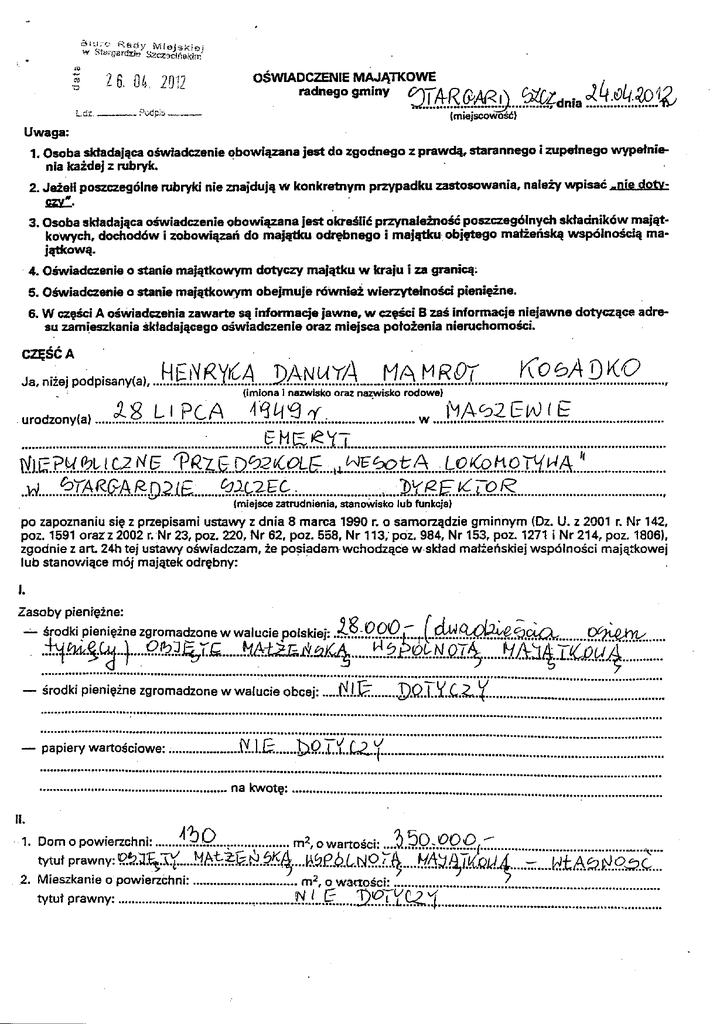 Biuro Rady Miejskiej
w Stargardzie Szczecińskim
data
26. 04. 2012
L.dz. Podpis
OŚWIADCZENIE MAJĄTKOWE
radnego gminy STARGARD SZCZ dnia 24.04.2012 r.
(miejscowość)
Uwaga:
1. Osoba składająca oświadczenie obowiązana jest do zgodnego z prawdą, starannego i zupełnego wypełnie-
nia każdej z rubryk.
2. Jeżeli poszczególne rubryki nie znajdują w konkretnym przypadku zastosowania, należy wpisać „nie doty-
czy".
3. Osoba składająca oświadczenie obowiązana jest określić przynależność poszczególnych składników mająt-
kowych, dochodów i zobowiązań do majątku odrębnego i majątku objętego małżeńską wspólnością ma-
jątkową.
4. Oświadczenie o stanie majątkowym dotyczy majątku w kraju i za granicą.
5. Oświadczenie o stanie majątkowym obejmuje również wierzytelności pieniężne.
6. W części A oświadczenia zawarte są informacje jawne, w części B zaś informacje niejawne dotyczące adre-
su zamieszkania składającego oświadczenie oraz miejsca położenia nieruchomości.
CZĘŚĆ A
Ja, niżej podpisany(a), HENRYKA DANUTA MAMROT KOSADKO,
(imiona i nazwisko oraz nazwisko rodowe)
urodzony(a) 28 LIPCA 1949 r. w MASZEWIE
EMERYT
NIEPUBLICZNE PRZEDSZKOLE „WESOŁA LOKOMOTYWA"
W STARGARDZIE SZCZEC. DYREKTOR,
(miejsce zatrudnienia, stanowisko lub funkcja)
po zapoznaniu się z przepisami ustawy z dnia 8 marca 1990 r. o samorządzie gminnym (Dz. U. z 2001 r. Nr 142,
poz. 1591 oraz z 2002 r. Nr 23, poz. 220, Nr 62, poz. 558, Nr 113, poz. 984, Nr 153, poz. 1271 i Nr 214, poz. 1806),
zgodnie z art. 24h tej ustawy oświadczam, że posiadam wchodzące w skład małżeńskiej wspólności majątkowej
lub stanowiące mój majątek odrębny:
I.
Zasoby pieniężne:
— środki pieniężne zgromadzone w walucie polskiej: 28.000,- (dwadzieścia osiem
tysięcy) OBJĘTE MAŁŻEŃSKĄ WSPÓLNOTĄ MAJĄTKOWĄ
— środki pieniężne zgromadzone w walucie obcej: NIE DOTYCZY
— papiery wartościowe: NIE DOTYCZY
na kwotę:
II.
1. Dom o powierzchni: 130 m², o wartości: 350.000,-
tytuł prawny: OBJĘTY MAŁŻEŃSKĄ WSPÓLNOTĄ MAJĄTKOWĄ - WŁASNOŚĆ
2. Mieszkanie o powierzchni: m², o wartości:
tytuł prawny: NIE DOTYCZY